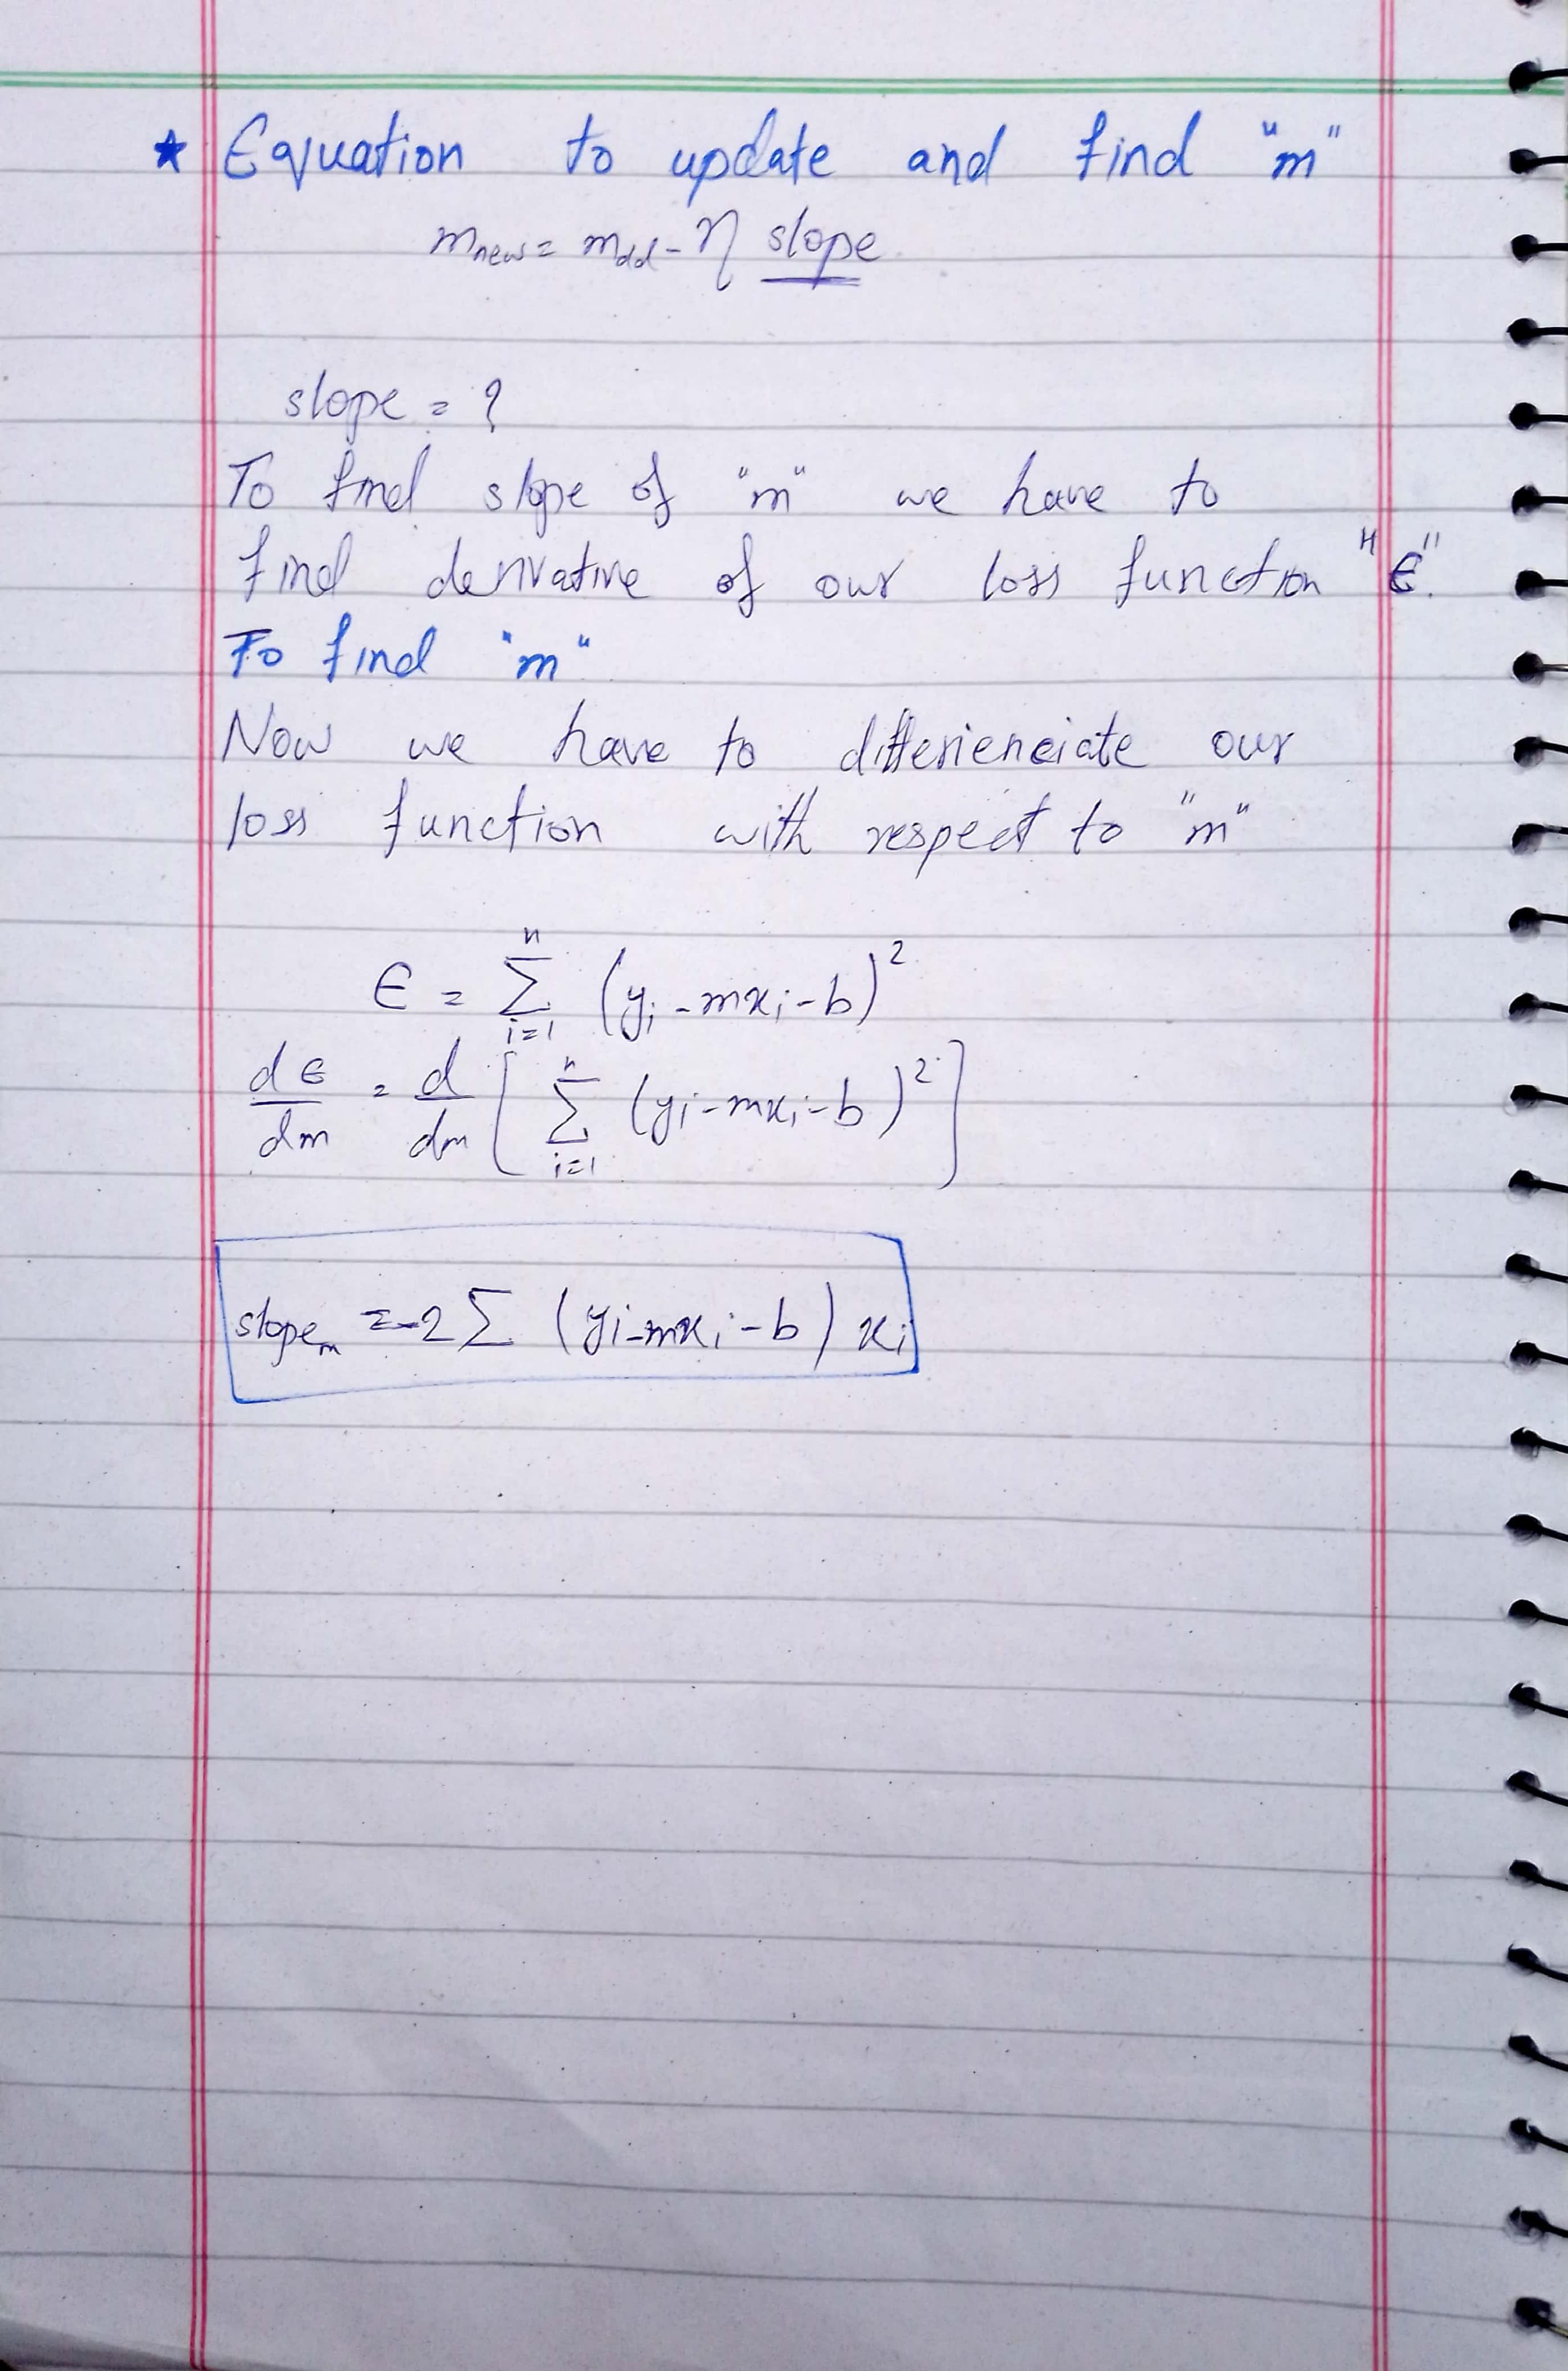 ★ Equation to update and find "m"
m_new = m_old - η slope
slope = ?
To find slope of "m" we have to
find derivative of our loss function "ϵ".
To find "m"
Now we have to differienciate our
loss function with respect to "m"
ϵ = ∑_{i=1}^{n} (y_i - mx_i - b)^2
dϵ/dm = d/dm [ ∑_{i=1}^{n} (y_i - mx_i - b)^2 ]
slope_m = -2 ∑ (y_i - mx_i - b) x_i